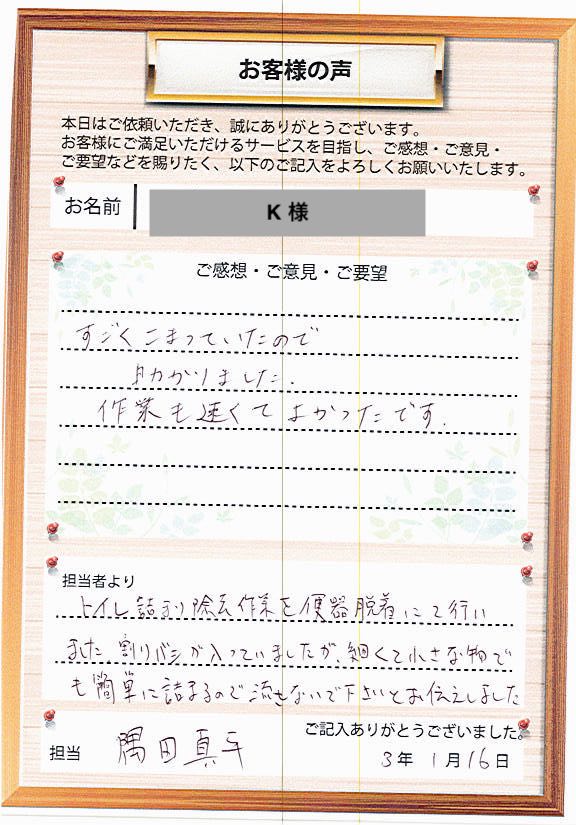 お客様の声
本日はご依頼いただき、誠にありがとうございます。
お客様にご満足いただけるサービスを目指し、ご感想・ご意見・
ご要望などを賜りたく、以下のご記入をよろしくお願いいたします。
お名前 K 様
ご感想・ご意見・ご要望
すごくこまっていたので
助かりました.
作業も速くてよかったです.
担当者より
トイレ詰まり除去作業を便器脱着にて行い
ました 割りバシが入っていましたが、細くて小さな物で
も簡単に詰まるので流さないで下さいとお伝えしました
ご記入ありがとうございました。
担当 隅田真平
3年 1月16日